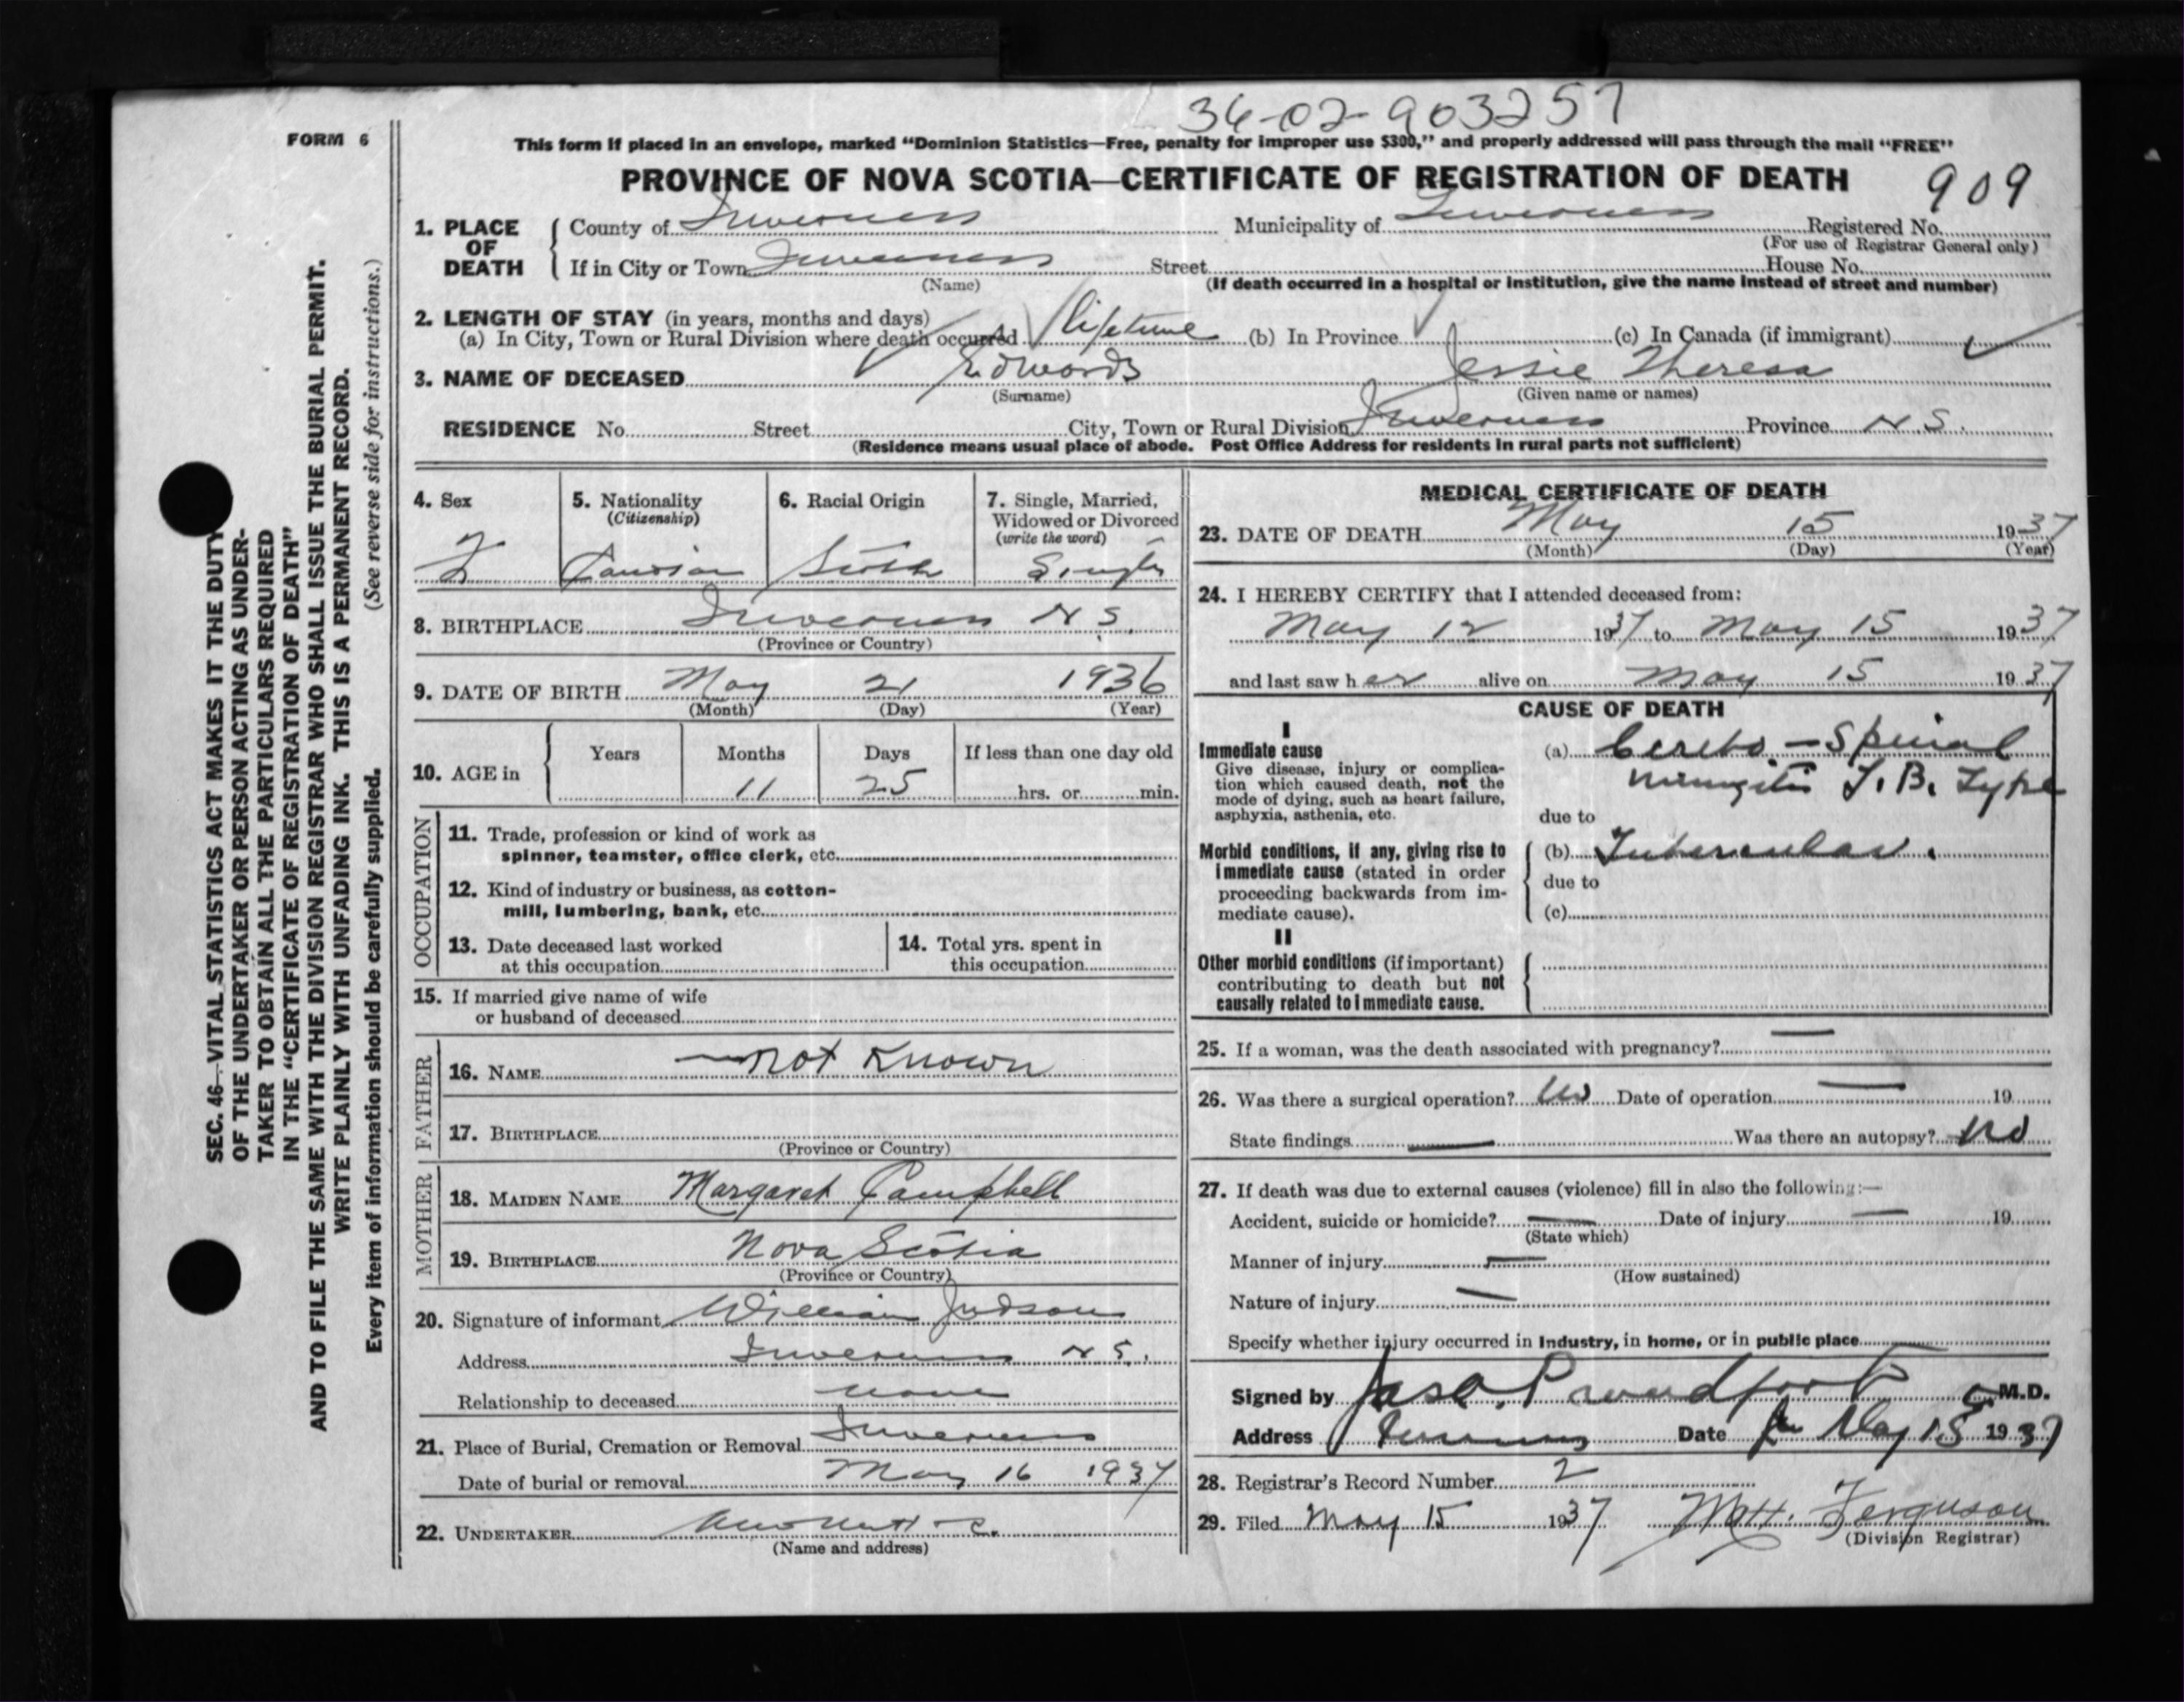 36-02-903257
FORM 6
This form if placed in an envelope, marked “Dominion Statistics—Free, penalty for improper use $300,” and properly addressed will pass through the mail “FREE”
PROVINCE OF NOVA SCOTIA—CERTIFICATE OF REGISTRATION OF DEATH 909
1. PLACE OF DEATH
County of Inverness Municipality of Inverness Registered No.
(For use of Registrar General only)
If in City or Town Inverness Street House No.
(Name) (If death occurred in a hospital or institution, give the name instead of street and number)
2. LENGTH OF STAY (in years, months and days)
(a) In City, Town or Rural Division where death occurred lifetime (b) In Province (c) In Canada (if immigrant)
3. NAME OF DECEASED Edwards Jessie Theresa
(Surname) (Given name or names)
RESIDENCE No. Street City, Town or Rural Division Inverness Province N.S.
(Residence means usual place of abode. Post Office Address for residents in rural parts not sufficient)
SEC. 46—VITAL STATISTICS ACT MAKES IT THE DUTY
OF THE UNDERTAKER OR PERSON ACTING AS UNDER-
TAKER TO OBTAIN ALL THE PARTICULARS REQUIRED
IN THE “CERTIFICATE OF REGISTRATION OF DEATH”
AND TO FILE THE SAME WITH THE DIVISION REGISTRAR WHO SHALL ISSUE THE BURIAL PERMIT.
WRITE PLAINLY WITH UNFADING INK. THIS IS A PERMANENT RECORD.
Every item of information should be carefully supplied. (See reverse side for instructions.)
4. Sex 5. Nationality 6. Racial Origin 7. Single, Married,
(Citizenship) Widowed or Divorced
(write the word)
F Single
8. BIRTHPLACE Inverness N S.
(Province or Country)
9. DATE OF BIRTH May 21 1936
(Month) (Day) (Year)
10. AGE in Years Months Days If less than one day old
11 25 hrs. or min.
OCCUPATION
11. Trade, profession or kind of work as
spinner, teamster, office clerk, etc.
12. Kind of industry or business, as cotton-
mill, lumbering, bank, etc.
13. Date deceased last worked
at this occupation
14. Total yrs. spent in
this occupation
15. If married give name of wife
or husband of deceased
FATHER
16. NAME not Known
17. BIRTHPLACE
(Province or Country)
MOTHER
18. MAIDEN NAME Margaret Campbell
19. BIRTHPLACE Nova Scotia
(Province or Country)
20. Signature of informant William Judson
Address Inverness N S.
Relationship to deceased none
21. Place of Burial, Cremation or Removal Inverness
Date of burial or removal May 16 1937
22. UNDERTAKER
(Name and address)
MEDICAL CERTIFICATE OF DEATH
23. DATE OF DEATH May 15 1937
(Month) (Day) (Year)
24. I HEREBY CERTIFY that I attended deceased from:
May 12 1937 to May 15 1937
and last saw her alive on May 15 1937
CAUSE OF DEATH
I
Immediate cause
Give disease, injury or complica-
tion which caused death, not the
mode of dying, such as heart failure,
asphyxia, asthenia, etc.
(a) Cerebo-Spinal
meningitis T.B. Type
due to
Morbid conditions, if any, giving rise to
immediate cause (stated in order
proceeding backwards from im-
mediate cause).
(b) Tubercular.
due to
(c)
II
Other morbid conditions (if important)
contributing to death but not
causally related to immediate cause.
25. If a woman, was the death associated with pregnancy? —
26. Was there a surgical operation? No Date of operation — 19
State findings — Was there an autopsy? No
27. If death was due to external causes (violence) fill in also the following:—
Accident, suicide or homicide? — Date of injury — 19
(State which)
Manner of injury —
(How sustained)
Nature of injury —
Specify whether injury occurred in industry, in home, or in public place —
Signed by M.D.
Address Inverness Date May 15 1937
28. Registrar’s Record Number 2
29. Filed May 15 1937 Ferguson
(Division Registrar)